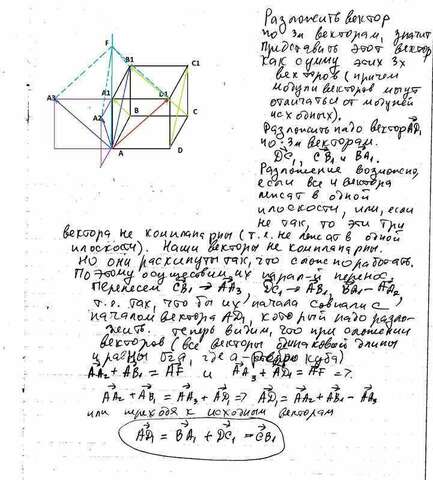 F
B1
C1
A3
A1
D1
A2
B
C
A
D
Разложить вектор
по 3м векторам, значит
представить этот вектор
как сумму этих 3х
векторов (причем
модули векторов могут
отличаться от модулей
исходных).
Разложить надо вектор AD1
по 3м векторам.
DC1, CB1 и BA1.
Разложение возможно,
если все 4 вектора
лежат в одной
плоскости, или, если
не так, то эти три
вектора не компланарны (т.е. не лежат в одной
плоскости). Наши векторы не компланарны.
Но они раскинуты так, что сложно работать.
Поэтому осуществим их парал-й перенос.
Перенесем CB1 → AA3, DC1 → AB1, BA1 → AA2
т.е. так, что бы их начала совпали с
началом вектора AD1, который надо разло-
жить. Теперь видим, что при сложении
векторов (все векторы одинаковой длины
и равны a, где a - ребро куба)
AA2 + AB1 = AF и AA3 + AD1 = AF =>
AA2 + AB1 = AA3 + AD1 => AD1 = AA2 + AB1 - AA3
или переходя к исходным векторам
AD1 = BA1 + DC1 - CB1